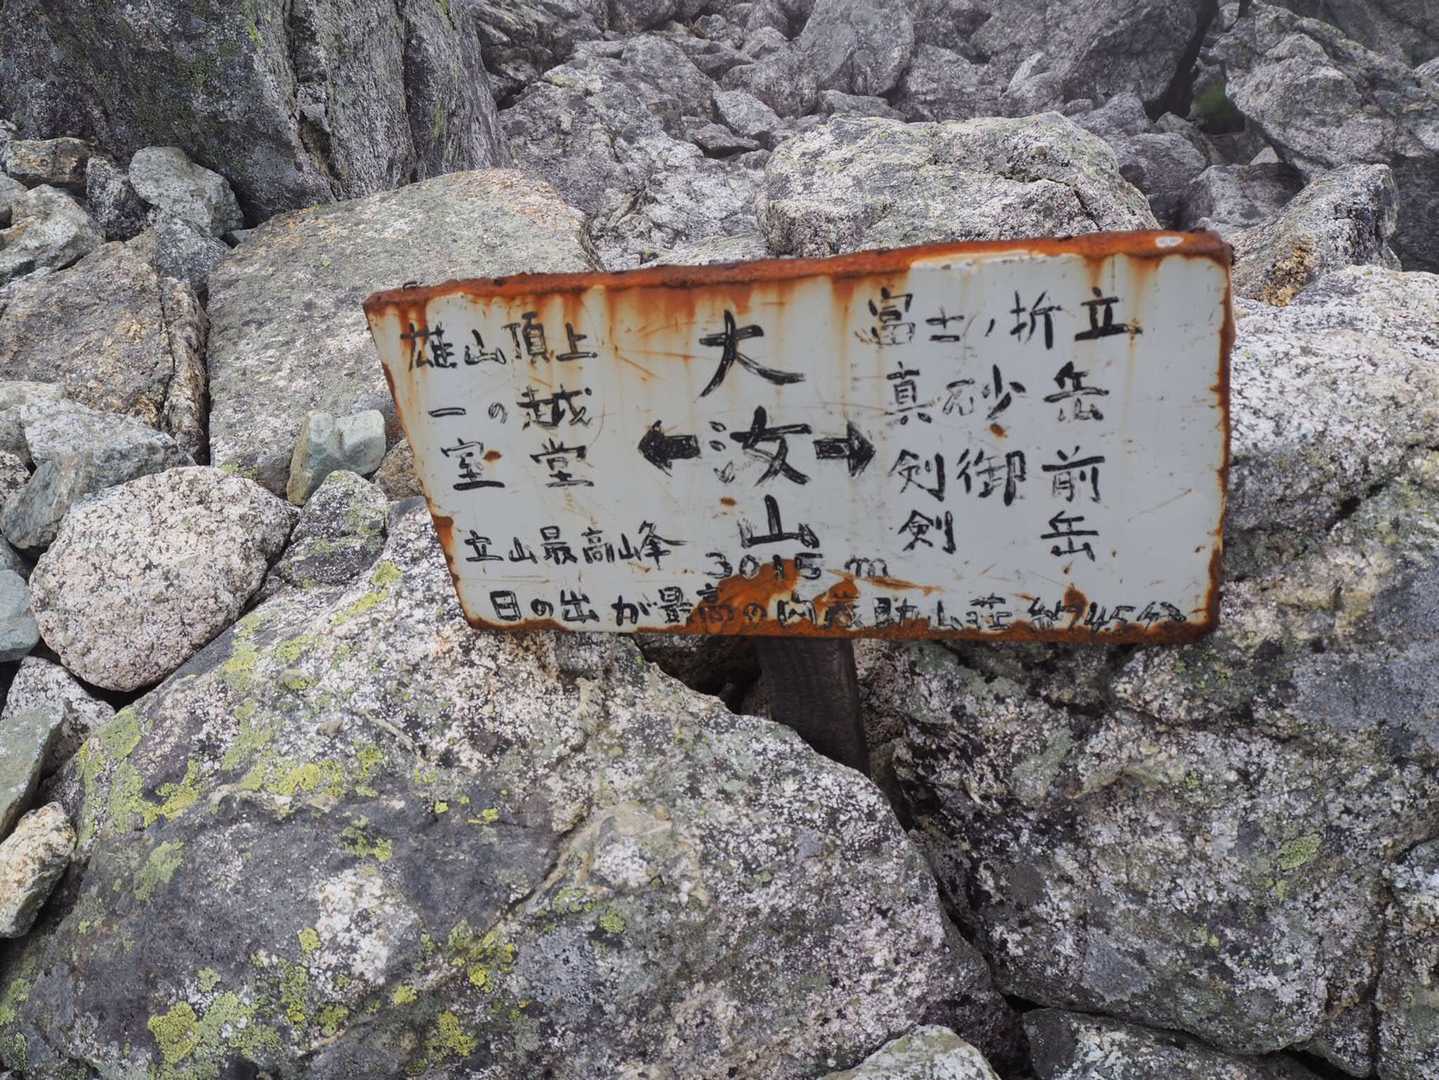 雄山頂上
一の越
室堂
大汝山
富士ノ折立
真砂岳
剣御前
剣岳
立山最高峰 3015m
日の出が最高の内蔵助山荘 約45分